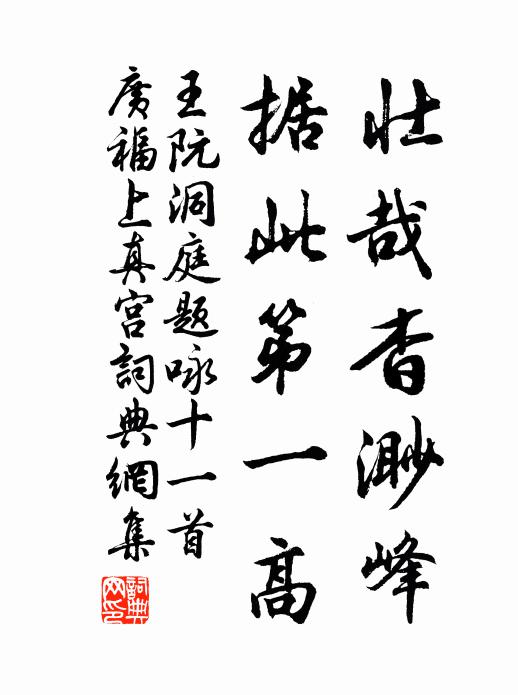 壮哉杳渺峰
据此第一高
王阮洞庭题咏十一首
广福上真宫词典网集
詞典网印